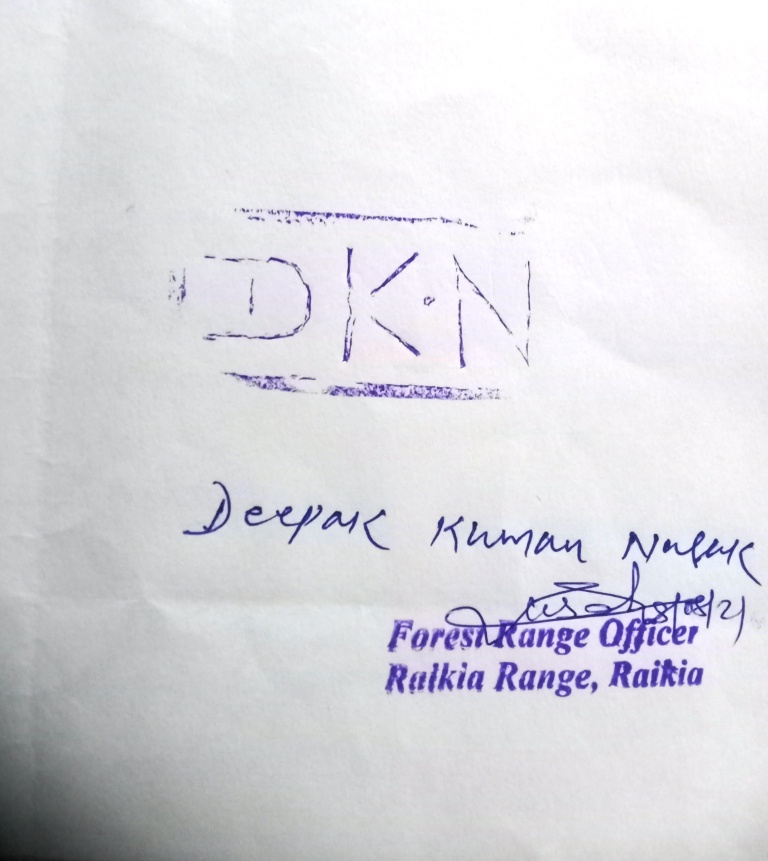 DK.N
Deepak Kumar Nayak
Forest Range Officer
Raikia Range, Raikia